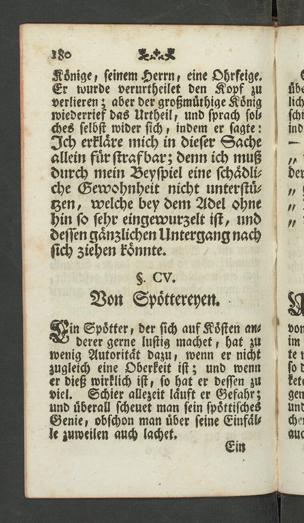 180
Könige, seinem Herrn, eine Ohrfeige.
Er wurde verurtheilet den Kopf zu
verlieren; aber der großmüthige König
wiederrief das Urtheil, und sprach sol-
ches selbst wider sich, indem er sagte:
Ich erkläre mich in dieser Sache
allein für strafbar; denn ich muß
durch mein Beyspiel eine schädli-
che Gewohnheit nicht unterstü-
tzen, welche bey dem Adel ohne
hin so sehr eingewurzelt ist, und
dessen gänzlichen Untergang nach
sich ziehen könnte.
§. CV.
Von Spöttereyen.
Ein Spötter, der sich auf Kösten an-
derer gerne lustig machet, hat zu
wenig Autorität dazu, wenn er nicht
zugleich eine Oberkeit ist; und wenn
er dieß wirklich ist, so hat er dessen zu
viel. Schier allezeit läuft er Gefahr;
und überall scheuet man sein spöttisches
Genie, obschon man über seine Einfäl-
le zuweilen auch lachet.
Ein